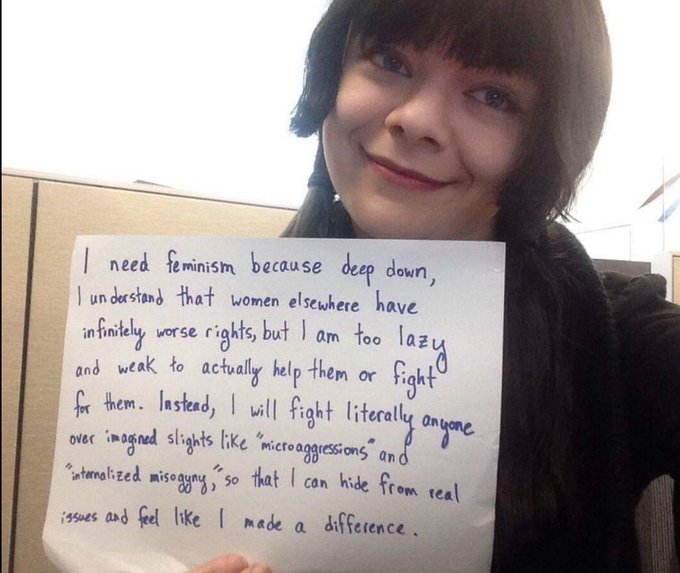 I need feminism because deep down,
I understand that women elsewhere have
infinitely worse rights, but I am too lazy
and weak to actually help them or fight
for them. Instead, I will fight literally anyone
over imagined slights like "microaggressions" and
"internalized misogyny," so that I can hide from real
issues and feel like I made a difference.